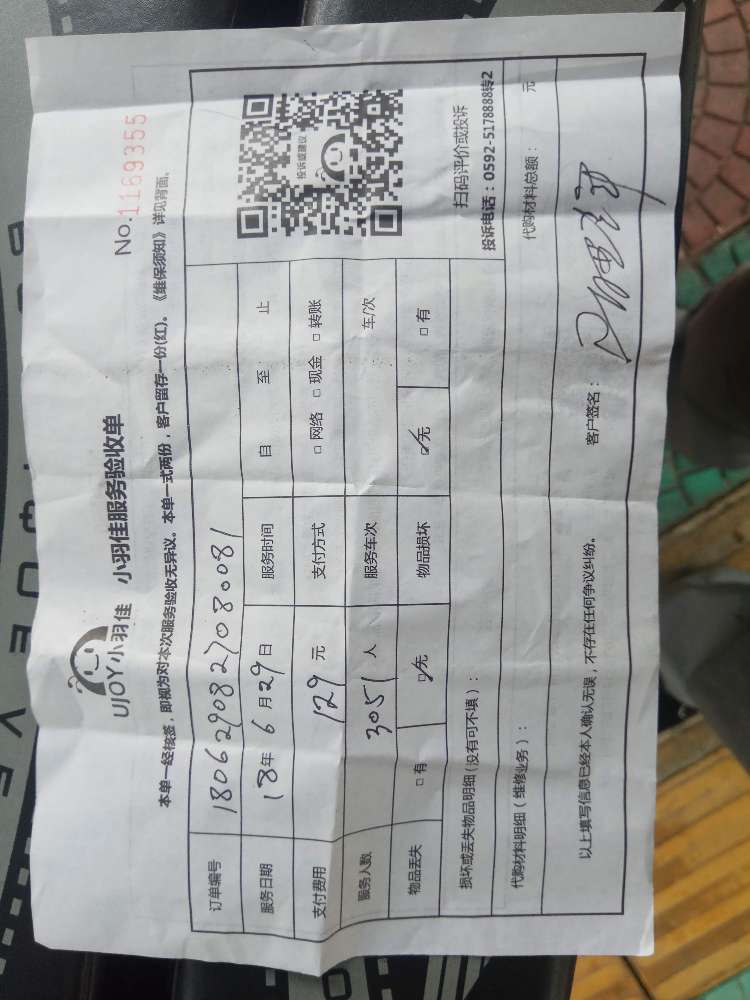 UJOY小羽佳 小羽佳服务验收单
No.1169355
本单一经核签，即视为对本次服务验收无异议。本单一式两份，客户留存一份(红)。《维保须知》详见背面。
订单编号 1806290827080081
服务日期 18年 6月 29日 服务时间 自 至 止
支付费用 129 元 支付方式 □ 网络 □ 现金 □ 转账
服务人数 3051 人 服务车次 车/次
物品丢失 □ 有 ☑ 无 物品损坏 ☑ 无 □ 有
投诉或建议
扫码评价或投诉
投诉电话：0592-5178888转2
损坏或丢失物品明细(没有可不填)：
代购材料明细(维修业务)： 代购材料总额： 元
以上填写信息已经本人确认无误，不存在任何争议纠纷。 客户签名：